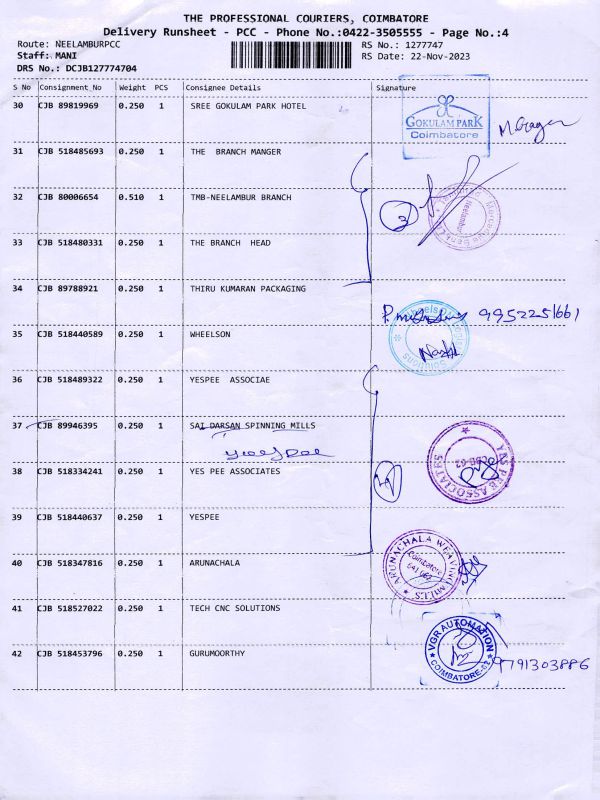 THE PROFESSIONAL COURIERS, COIMBATORE
Delivery Runsheet - PCC - Phone No.:0422-3505555 - Page No.:4
Route: NEELAMBURPCC RS No.: 1277747
Staff: MANI RS Date: 22-Nov-2023
DRS No.: DCJB127774704
S No Consignment No Weight PCS Consignee Details Signature
30 CJB 89819969 0.250 1 SREE GOKULAM PARK HOTEL
GOKULAM PARK
Coimbatore
31 CJB 518485693 0.250 1 THE BRANCH MANGER
32 CJB 80006654 0.510 1 TMB-NEELAMBUR BRANCH
3
Neelambur
33 CJB 518480331 0.250 1 THE BRANCH HEAD
34 CJB 89788921 0.250 1 THIRU KUMARAN PACKAGING
9952251661
35 CJB 518440589 0.250 1 WHEELSON
36 CJB 518489322 0.250 1 YESPEE ASSOCIAE
37 CJB 89946395 0.250 1 SAI DARSAN SPINNING MILLS
yes pee
38 CJB 518334241 0.250 1 YES PEE ASSOCIATES
4
39 CJB 518440637 0.250 1 YESPEE
40 CJB 518347816 0.250 1 ARUNACHALA
ARUNACHALA WEAVING MILLS
Coimbatore
41 CJB 518527022 0.250 1 TECH CNC SOLUTIONS
VGR AUTOMATION
COIMBATORE-62
42 CJB 518453796 0.250 1 GURUMOORTHY
9791303886